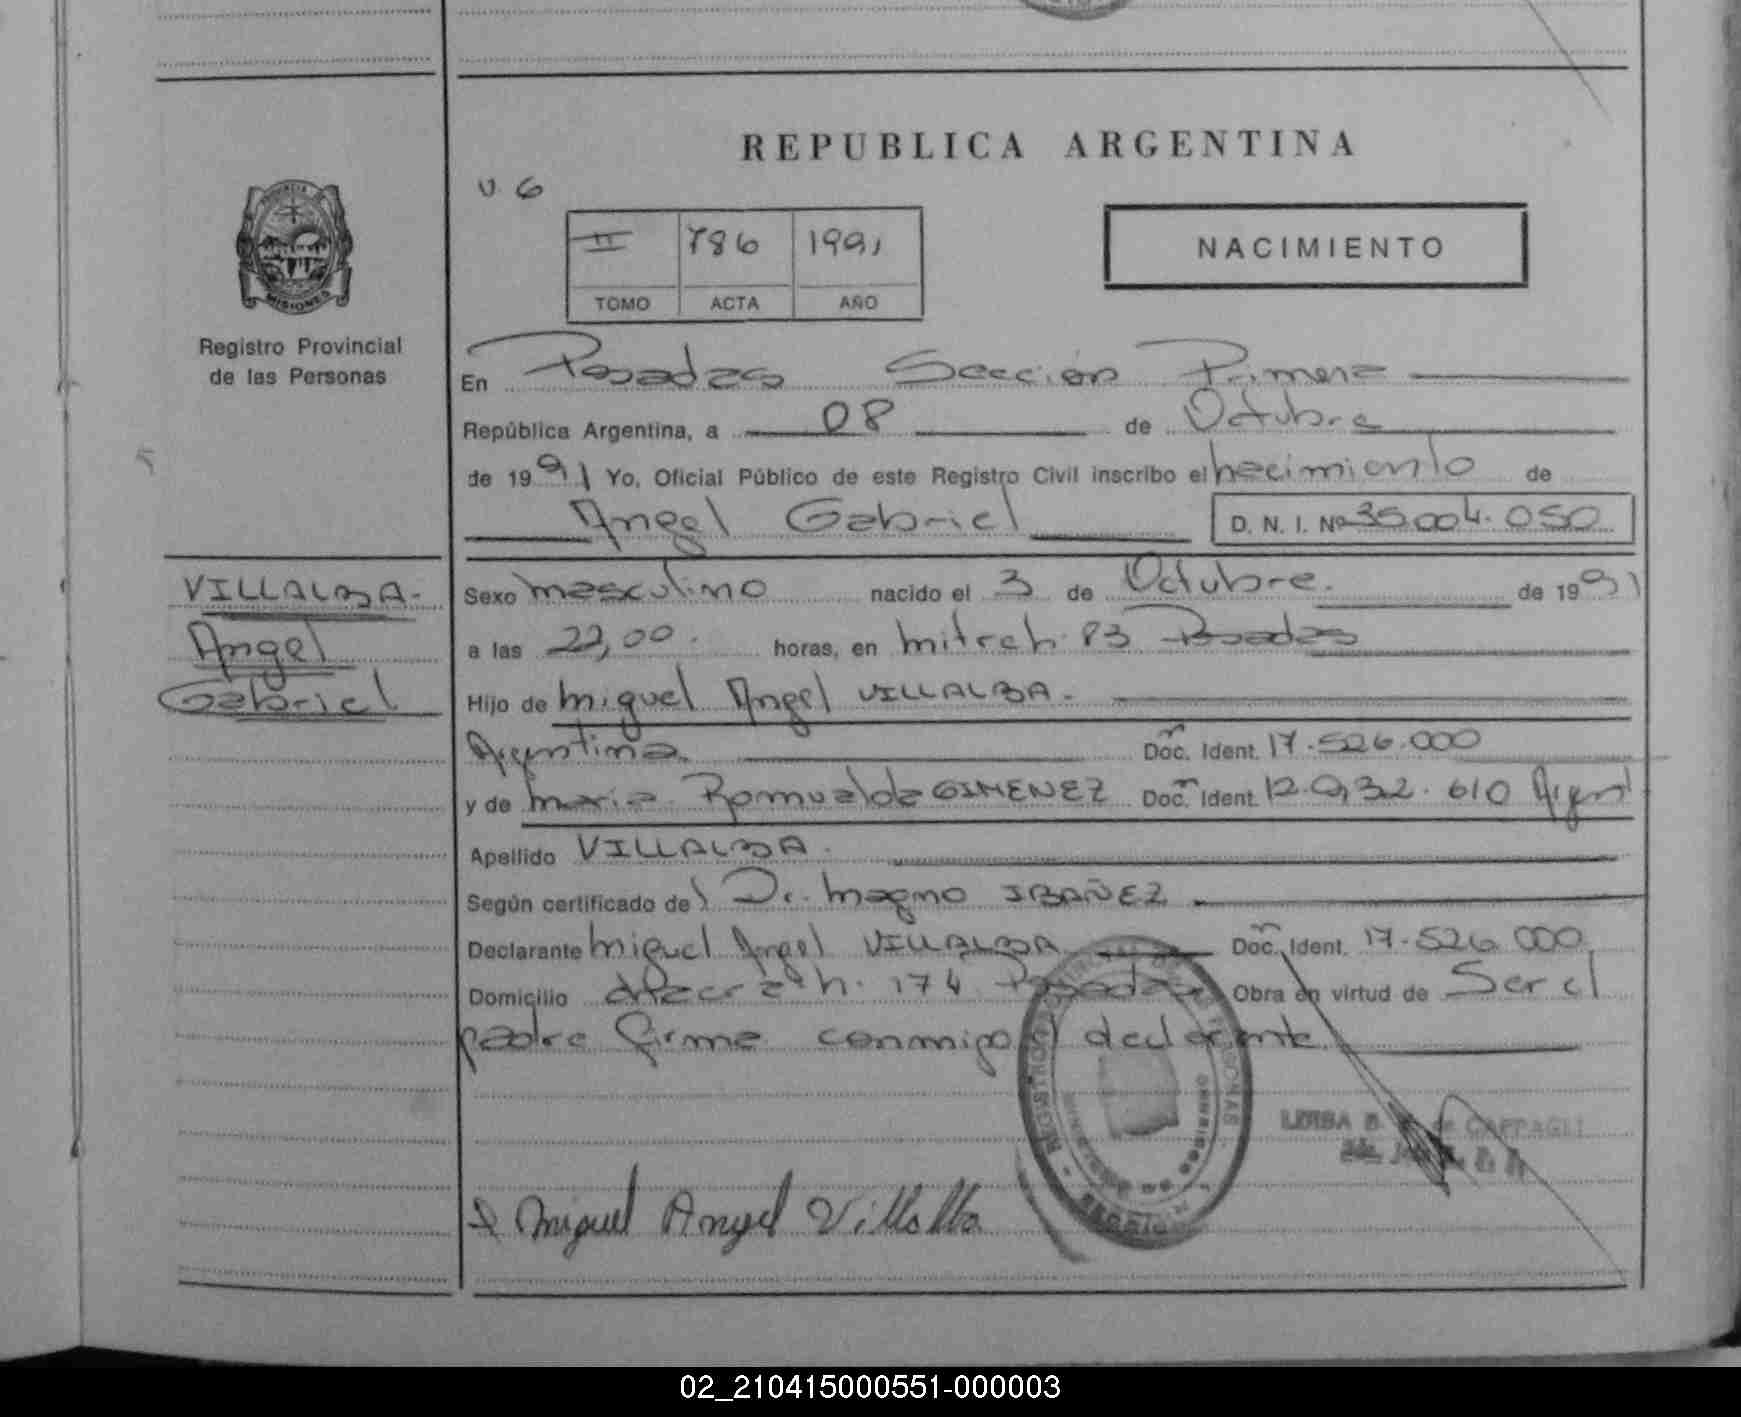 REPUBLICA ARGENTINA
V. 6
II 786 1991
TOMO ACTA AÑO
NACIMIENTO
PROVINCIA DE
MISIONES
Registro Provincial
de las Personas
En Posadas Sección Primera
República Argentina, a 08 de Octubre
de 1991 Yo, Oficial Público de este Registro Civil inscribo el nacimiento de
Angel Gabriel D. N. I. Nº 35.004.050
VILLALBA.
Angel
Gabriel
Sexo masculino nacido el 3 de Octubre. de 1991
a las 22,00. horas, en mitre h. 83 Posadas
Hijo de Miguel Angel VILLALBA.
Argentina. Doc. Ident. 17.526.000
y de Maria Romualda GIMENEZ Doc. Ident. 12.932.610 Argent
Apellido VILLALBA.
Según certificado del Dr. Magno IBAÑEZ
Declarante Miguel Angel VILLALBA Doc. Ident. 17.526.000
Domicilio chacra h. 174 Posadas Obra en virtud de Ser el
padre firma conmigo el declarante
LUISA B. de CAFFAGLI
Miguel Angel Villalba
02_210415000551-000003